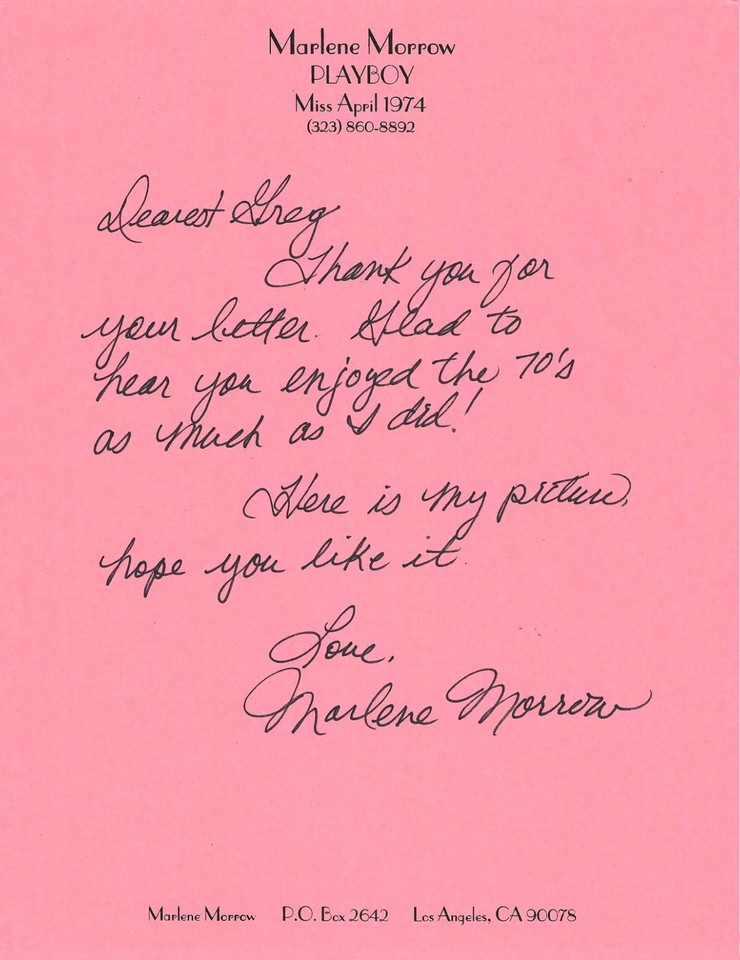 Marlene Morrow
PLAYBOY
Miss April 1974
(323) 860-8892
Dearest Greg
Thank you for
your letter. Glad to
hear you enjoyed the 70's
as much as I did!
Here is my picture,
hope you like it.
Love,
Marlene Morrow
Marlene Morrow P.O. Box 2642 Los Angeles, CA 90078